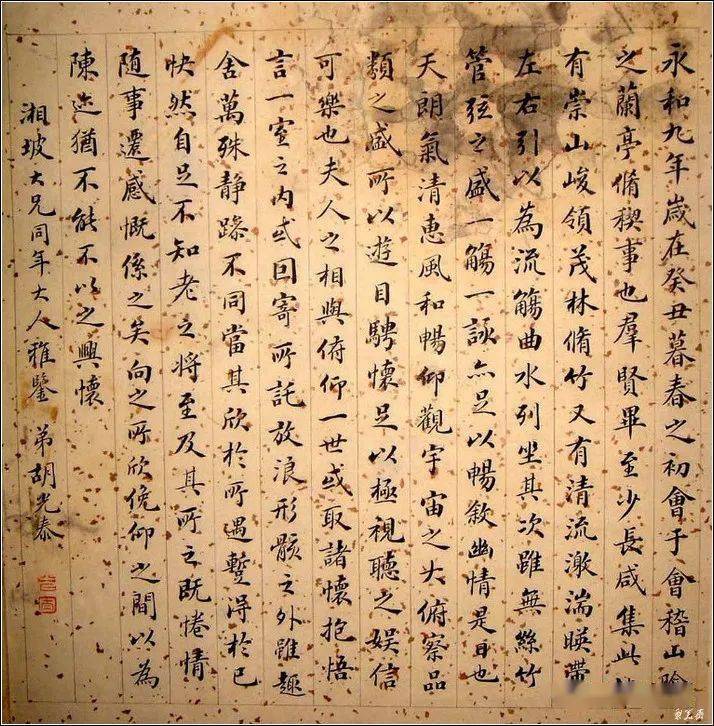 永和九年歲在癸丑暮春之初會于會稽山陰
之蘭亭脩稧事也羣賢畢至少長咸集此
有崇山峻領茂林脩竹又有清流激湍暎帶
左右引以為流觴曲水列坐其次雖無絲竹
管弦之盛一觴一詠亦足以暢敘幽情是日也
天朗氣清惠風和暢仰觀宇宙之大俯察品
類之盛所以遊目騁懷足以極視聽之娛信
可樂也夫人之相與俯仰一世或取諸懷抱悟
言一室之內或回寄所託放浪形骸之外雖趣
舍萬殊静躁不同當其欣於所遇蹔得於己
快然自足不知老之將至及其所之既惓情
随事遷感慨係之矣向之所欣俛仰之間以為
陳迹猶不能不以之興懷
湘坡大兄同年大人雅鑒 弟胡光泰